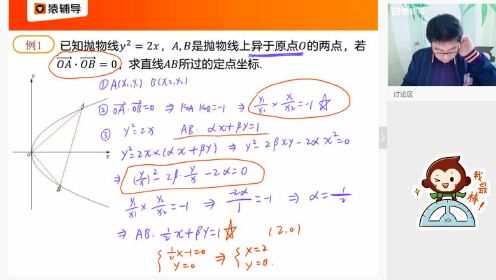 猿辅导
例1 已知抛物线y²=2x，A,B是抛物线上异于原点O的两点，若
OA·OB=0，求直线AB所过的定点坐标.
① A(x₁,y₁) B(x₂,y₂)
② OA·OB=0 ⇒ kOA kOB=-1 ⇒ y₁/x₁ × y₂/x₂ = -1 ☆
③ y²=2x AB: αx+βy=1
y²=2x×(αx+βy) ⇒ y²-2βxy-2αx²=0
⇒ (y/x)²-2β·y/x-2α=0
y₁/x₁ × y₂/x₂ = -1 ⇒ -2α/1 = -1 ⇒ α=1/2
⇒ AB: 1/2x+βy=1 ☆ (2,0)
{ 1/2x-1=0 y=0 ⇒ { x=2 y=0.
y
x
O
A
B
讨论区
我最棒!